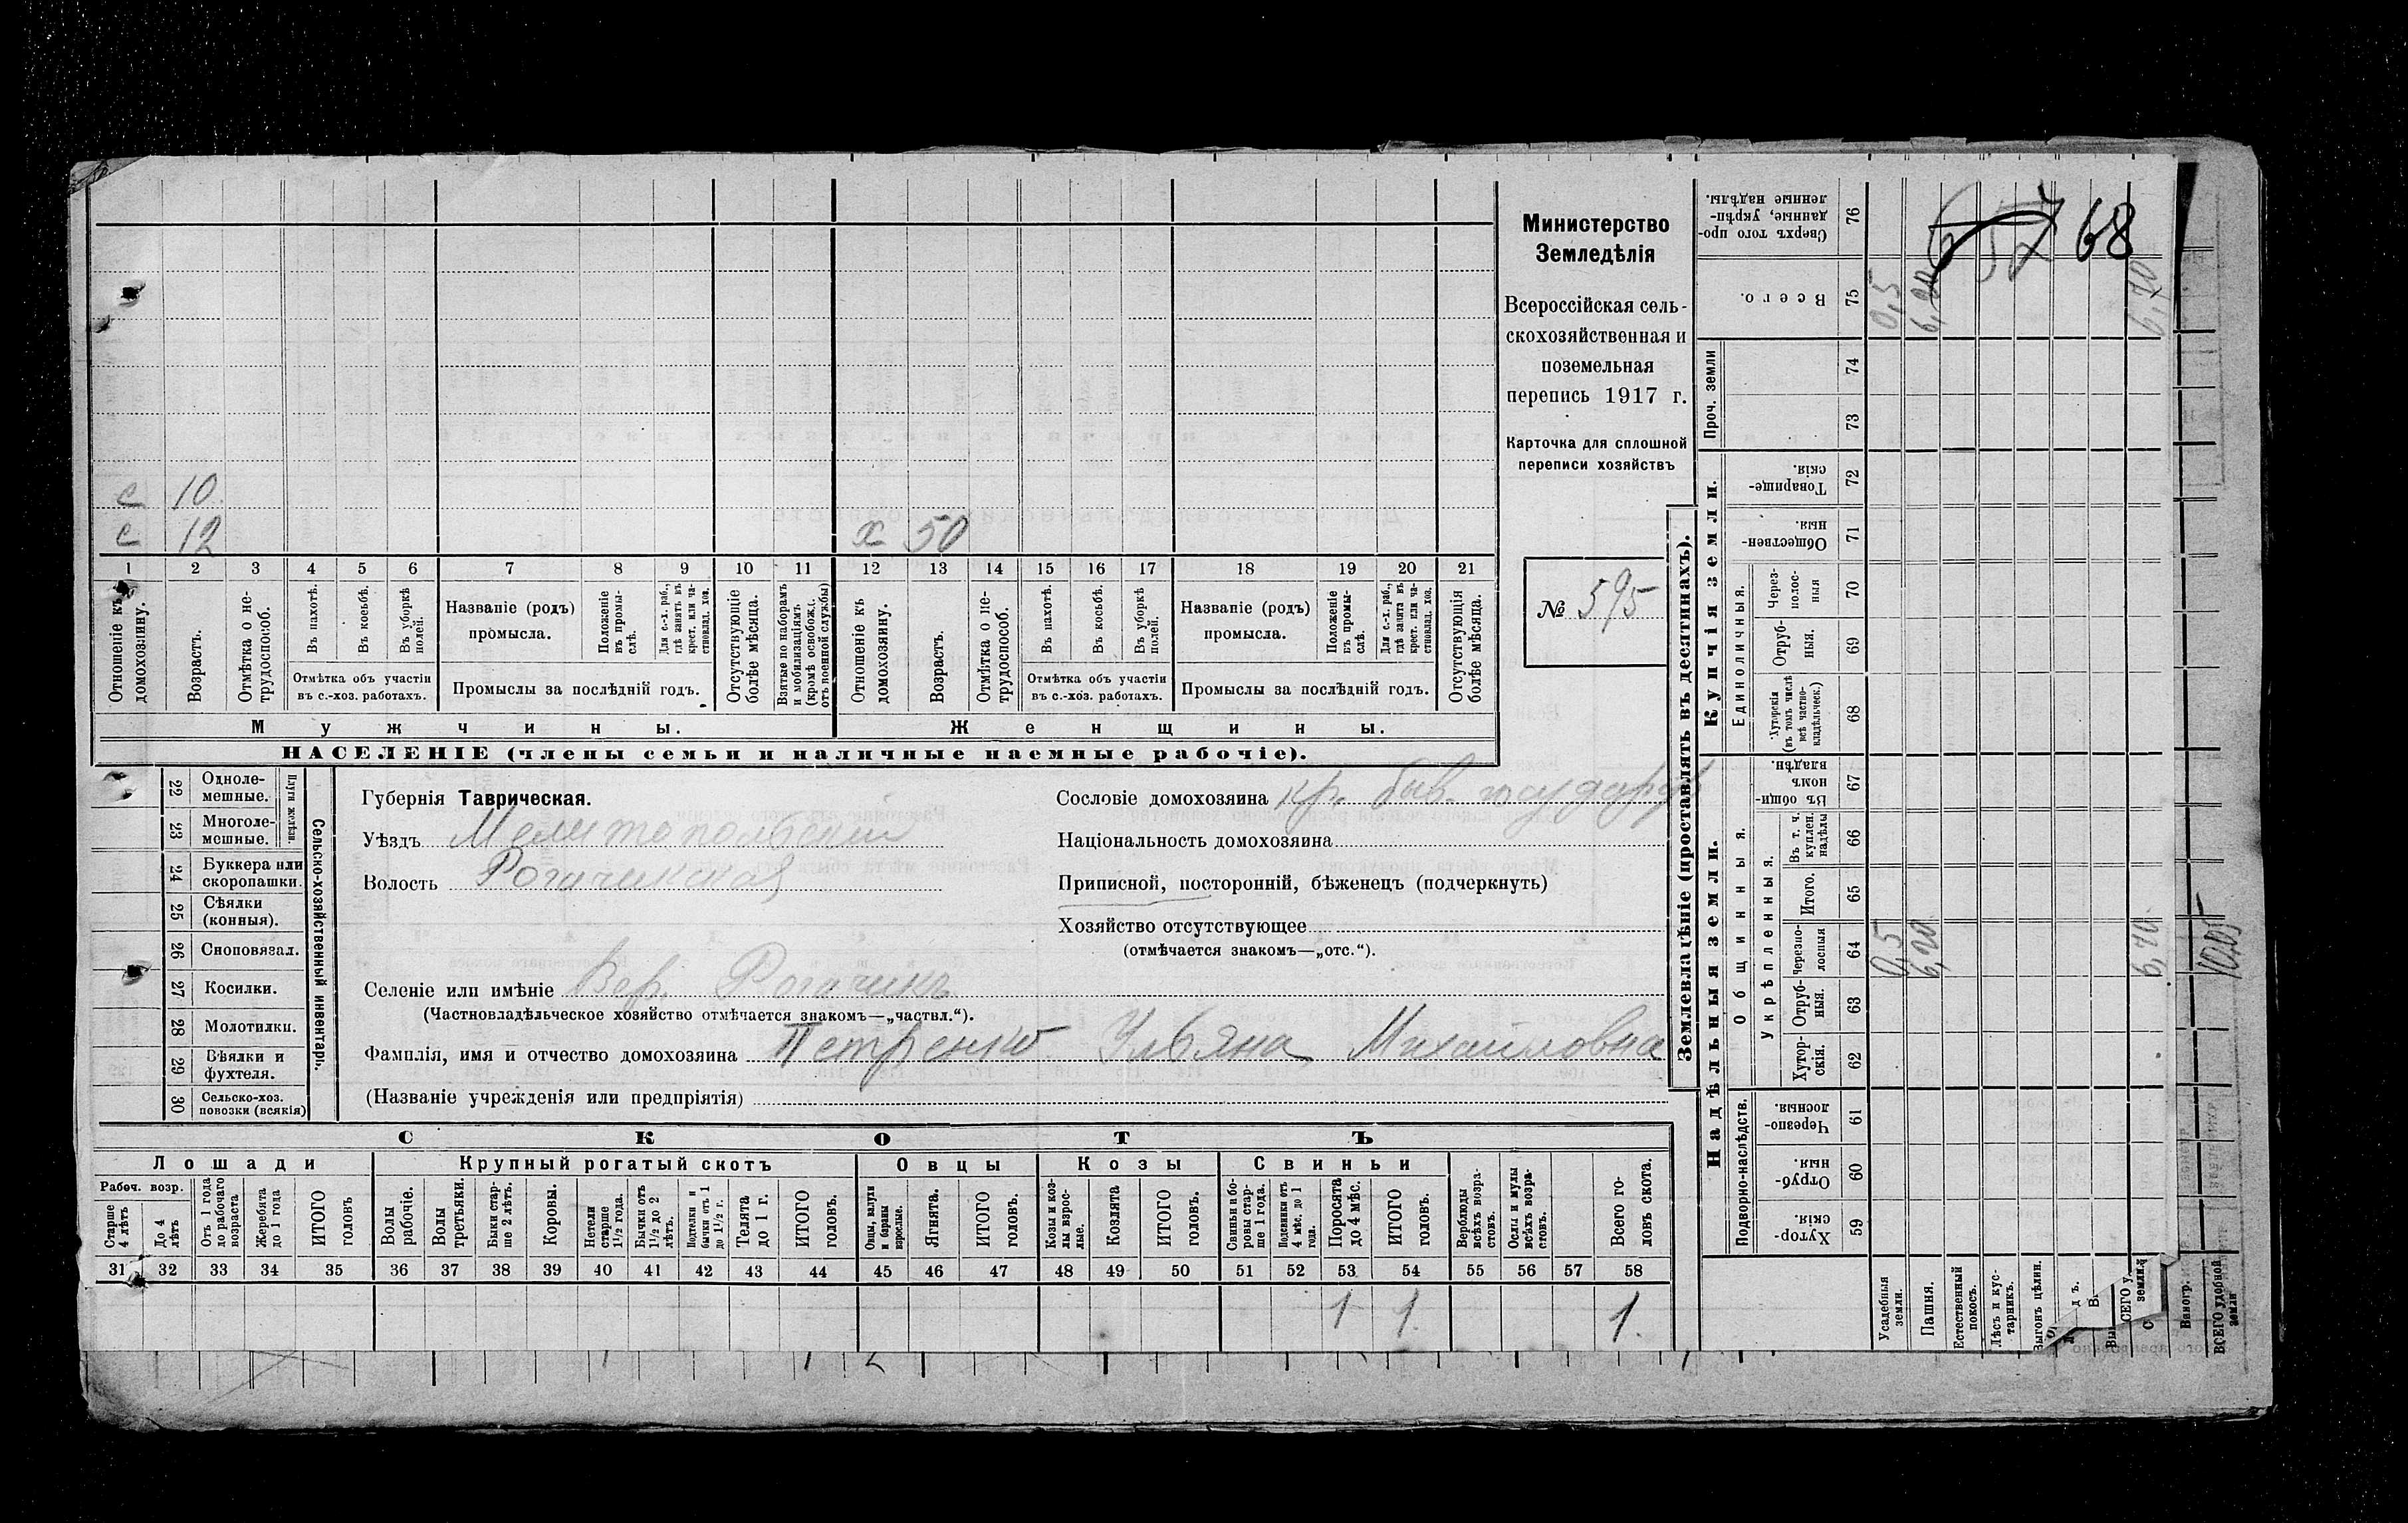 с 10
с 12
х 50
1 2 3 4 5 6 7 8 9 10 11 12 13 14 15 16 17 18 19 20 21
Отношеніе къ домохозяину.
Возрастъ.
Отмѣтка о не-
трудоспособ.
Въ пахотѣ.
Въ косьбѣ.
Въ уборкѣ
полей.
Отмѣтка объ участіи
въ с.-хоз. работахъ.
Названіе (родъ)
промысла.
Положеніе
въ промы-
слѣ.
Для с.-х. раб.,
гдѣ занятъ въ
крест. или ча-
стновлад. хоз.
Промыслы за послѣдній годъ.
Отсутствующіе
болѣе мѣсяца.
Взятые по наборамъ
и мобилизаціямъ
(кромѣ освобожд.
отъ военной службы)
Отношеніе къ
домохозяину.
Возрастъ.
Отмѣтка о не-
трудоспособ.
Въ пахотѣ.
Въ косьбѣ.
Въ уборкѣ
полей.
Отмѣтка объ участіи
въ с.-хоз. работахъ.
Названіе (родъ)
промысла.
Положеніе
въ промы-
слѣ.
Для с.-х. раб.,
гдѣ занята въ
крест. или ча-
стновлад. хоз.
Промыслы за послѣдній годъ.
Отсутствующія
болѣе мѣсяца.
Мужчины.
Женщины.
НАСЕЛЕНІЕ (члены семьи и наличные наемные рабочіе).
Министерство
Земледѣлія
Всероссійская сель-
скохозяйственная и
поземельная
перепись 1917 г.
Карточка для сплошной
переписи хозяйствъ
№ 595
22 Одноле-
мешные.
23 Многоле-
мешные.
Плуги желѣзн.
24 Буккера или
скоропашки.
25 Сѣялки
(конныя).
26 Сноповязал.
27 Косилки.
28 Молотилки.
29 Вѣялки и
фухтеля.
30 Сельско-хоз.
повозки (всякія)
Сельско-хозяйственный инвентарь.
Губернія Таврическая.
Уѣздъ Мелитопольскій
Волость Рогачикская
Сословіе домохозяина кр. быв. государст
Національность домохозяина
Приписной, посторонній, бѣженецъ (подчеркнуть)
Хозяйство отсутствующее
(отмѣчается знакомъ—„отс.“).
Селеніе или имѣніе Вер. Рогачикъ
(Частновладѣльческое хозяйство отмѣчается знакомъ—„частвл.“).
Фамилія, имя и отчество домохозяина Петренко Ульяна Михайловна
(Названіе учрежденія или предпріятія)
СКОТЪ
Лошади
Крупный рогатый скотъ
Овцы
Козы
Свиньи
Рабоч. возр.
Старше
4 лѣтъ
До 4
лѣтъ
Отъ 1 года
до рабочаго
возраста
Жеребята
до 1 года
ИТОГО
головъ
Волы
рабочіе.
Волы
третьяки.
Быки стар-
ше 2 лѣтъ.
Коровы.
Нетели
старше
1½ года.
Бычки отъ
1½ до 2
лѣтъ.
Подтелки и
бычки отъ 1
до 1½ г.
Телята
до 1 г.
ИТОГО
головъ.
Овцы, валухи
и бараны
взрослые.
Ягнята.
ИТОГО
головъ.
Козы и коз-
лы взрос-
лые.
Козлята
ИТОГО
головъ.
Свиньи и бо-
ровы стар-
ше 1 года.
Подсвинки отъ
4 мѣс. до 1
года.
Поросята
до 4 мѣс.
ИТОГО
головъ.
Верблюды
всѣхъ возра-
стовъ.
Ослы и мулы
всѣхъ возра-
стовъ.
Всего го-
ловъ скота.
31 32 33 34 35 36 37 38 39 40 41 42 43 44 45 46 47 48 49 50 51 52 53 54 55 56 57 58
1 1. 1.
Землевладѣніе (проставлять въ десятинахъ).
Купчія земли.
Надѣльныя земли.
Сверхъ того про-
данные, укрѣп-
ленные надѣлы.
76
68
Всего.
75
0,5
6,20
6,70
Проч. земли
74
73
Товарище-
скія.
72
Обществен-
ныя.
71
Единоличныя.
Через-
полос-
ныя
70
Отруб-
ныя.
69
Хуторскія
(въ томъ числѣ
всѣ частно-
владѣльческ.)
68
Общинныя.
Въ общи-
номъ
владѣн.
67
Въ т. ч.
куплен.
надѣлы
66
Укрѣпленныя.
Итого.
65
Черезпо-
лосныя
64
0,5
6,20
6,70
10.05
Отруб-
ныя.
63
Хутор-
скія.
62
Подворно-наслѣдств.
Черезпо-
лосныя.
61
Отруб-
ныя.
60
Хутор-
скія.
59
Усадебныя
земли.
Пашня.
Естественный
покосъ.
Лѣсъ и кус-
тарникъ.
Выгонъ цѣлин.
земли.
Виногр.
ВСЕГО удобной
земли